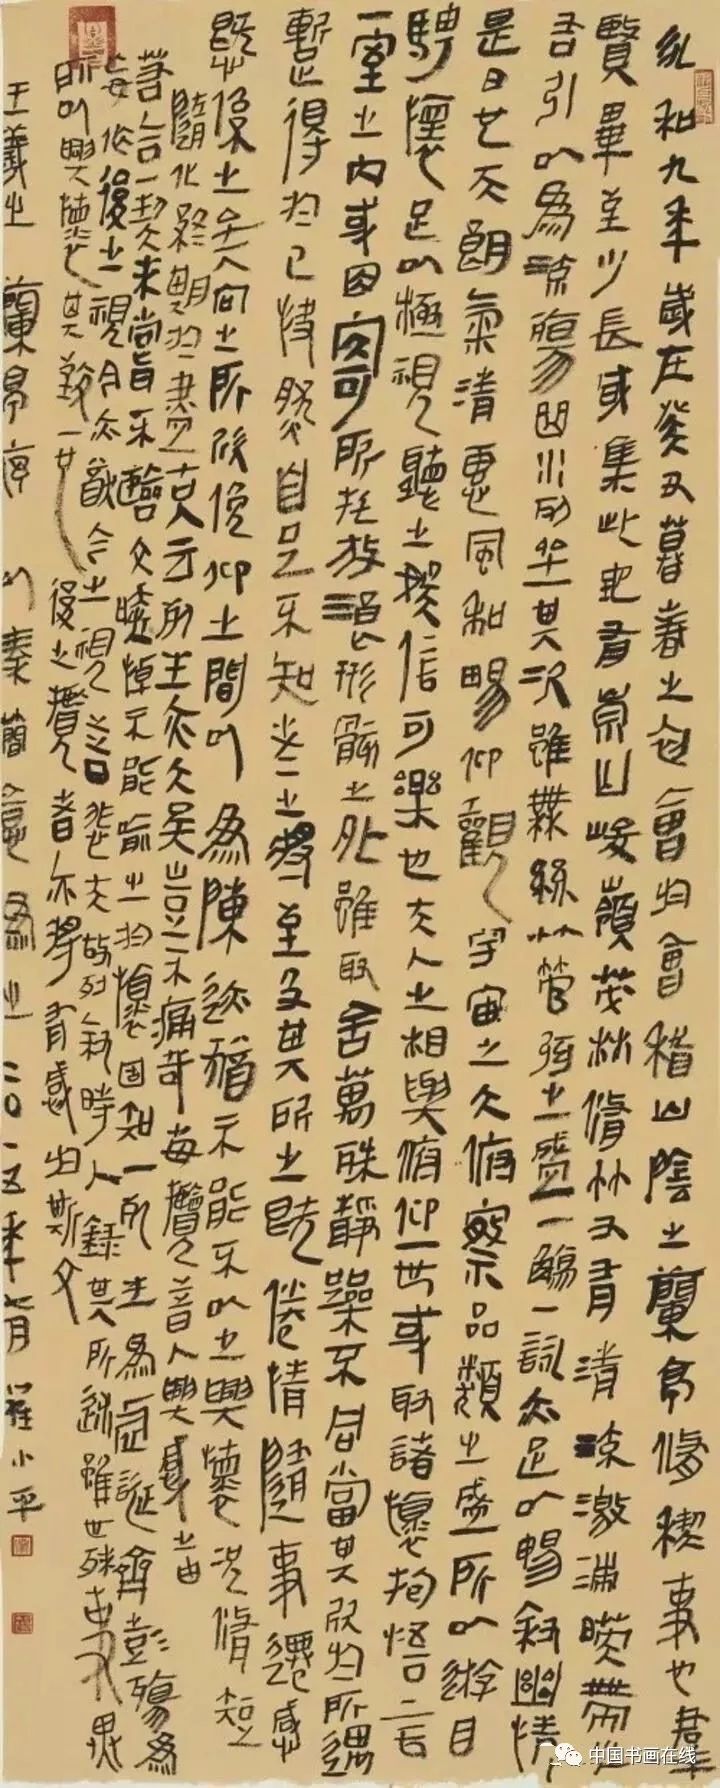 永和九年歲在癸丑暮春之初會於會稽山陰之蘭亭脩稧事也羣
賢畢至少長咸集此地有崇山峻嶺茂林脩竹又有清流激湍暎帶左
右引以為流觴曲水列坐其次雖無絲竹管弦之盛一觴一詠亦足以暢敘幽情
是日也天朗氣清惠風和暢仰觀宇宙之大俯察品類之盛所以遊目
騁懷足以極視聽之娛信可樂也夫人之相與俯仰一世或取諸懷抱悟言
一室之內或因寄所託放浪形骸之外雖取舍萬殊靜躁不同當其欣於所遇
暫得於己快然自足不知老之將至及其所之既倦情隨事遷感
慨係之矣向之所欣俛仰之間以為陳迹猶不能不以之興懷況脩短
隨化終期於盡古人云死生亦大矣豈不痛哉每攬昔人興感之由
若合一契未嘗不臨文嗟悼不能喻之於懷固知一死生為虛誕齊彭殤為
妄作後之視今亦猶今之視昔悲夫故列敘時人錄其所述雖世殊事異
所以興懷其致一也後之攬者亦將有感於斯文
王羲之蘭亭序以秦簡意為之二〇一五年七月小平
中国书画在线